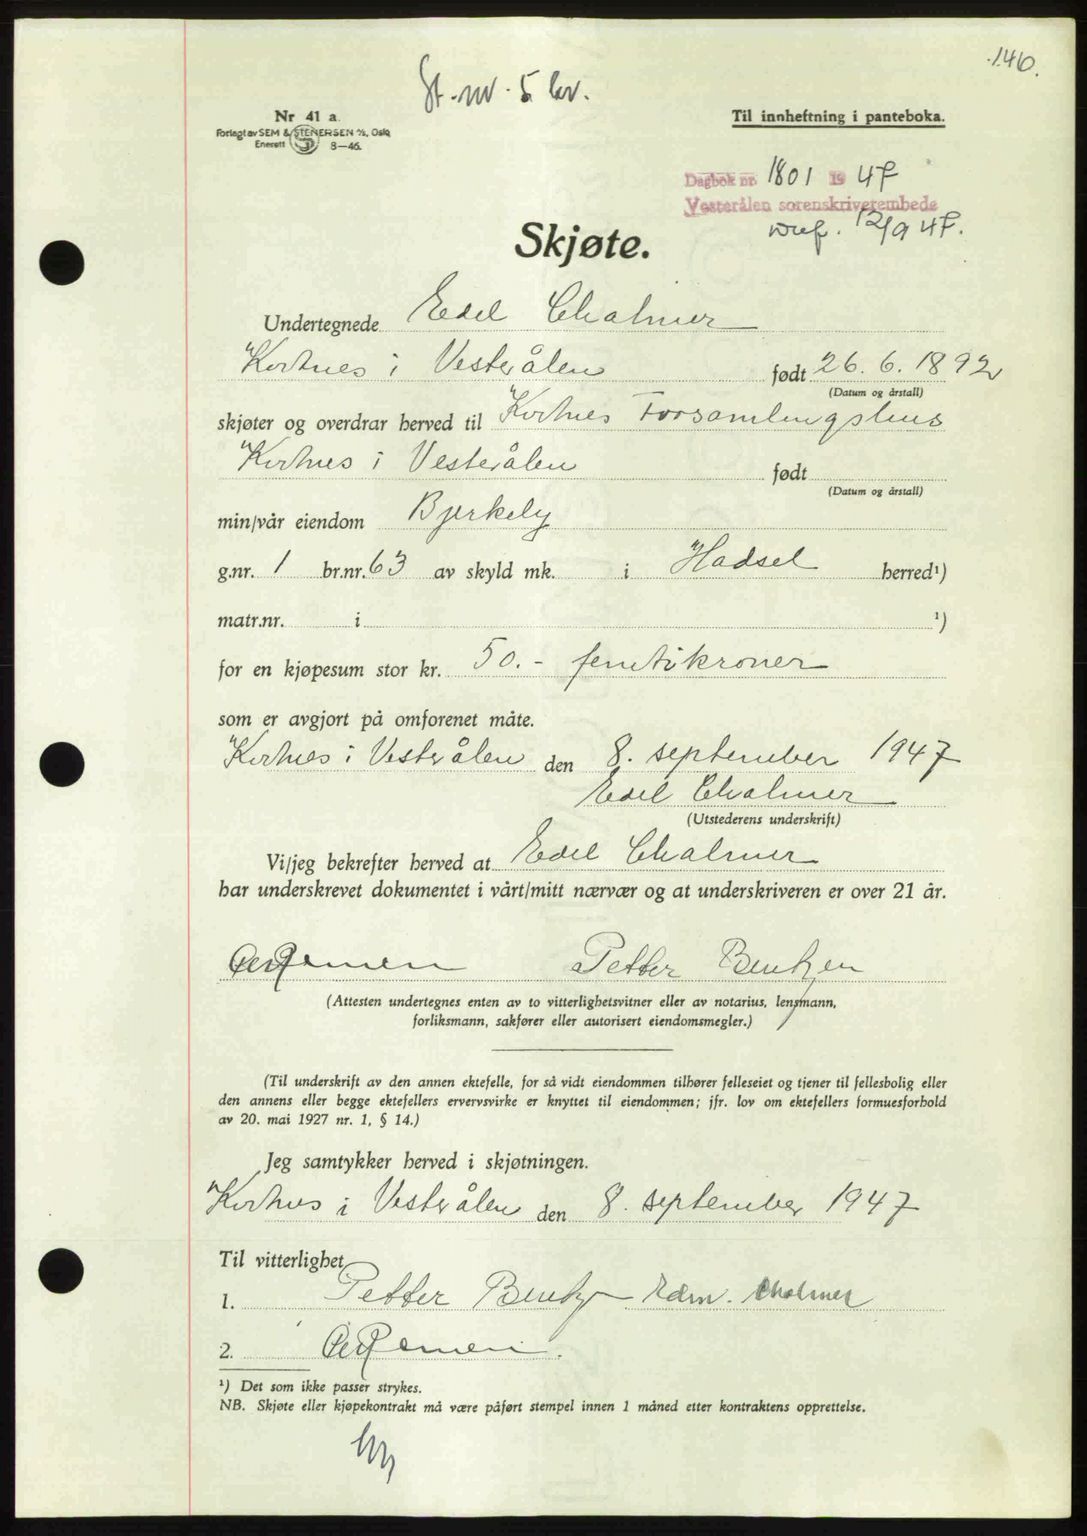 146.
St. nr. 5 kr.
Nr 41 a.
Forlagt av SEM & STENERSEN A/S, Oslo
Enerett 8—46.
Til innheftning i panteboka.
Dagbok nr. 1801 19 47
Vesterålen sorenskriverembede
12/9 47.
Skjøte.
Undertegnede Edel Chalmer
Kortnes i Vesterålen født 26.6.1892
(Datum og årstall)
skjøter og overdrar herved til Kortnes Forsamlingshus
Kortnes i Vesterålen født
(Datum og årstall)
min/vår eiendom Bjerkely
g.nr. 1 br.nr. 63 av skyld mk. i Hadsel herred¹)
matr.nr. i ¹)
for en kjøpesum stor kr. 50.- femtikroner
som er avgjort på omforenet måte.
Kortnes i Vesterålen den 8. september 1947
Edel Chalmer
(Utstederens underskrift)
Vi/jeg bekrefter herved at Edel Chalmer
har underskrevet dokumentet i vårt/mitt nærvær og at underskriveren er over 21 år.
Petter Bentzen
(Attesten undertegnes enten av to vitterlighetsvitner eller av notarius, lensmann,
forliksmann, sakfører eller autorisert eiendomsmegler.)
(Til underskrift av den annen ektefelle, for så vidt eiendommen tilhører felleseiet og tjener til fellesbolig eller
den annens eller begge ektefellers ervervsvirke er knyttet til eiendommen; jfr. lov om ektefellers formuesforhold
av 20. mai 1927 nr. 1, § 14.)
Jeg samtykker herved i skjøtningen.
Kortnes i Vesterålen den 8. september 1947
Til vitterlighet
1. Petter Bentzen Edm. Chalmer
2.
¹) Det som ikke passer strykes.
NB. Skjøte eller kjøpekontrakt må være påført stempel innen 1 måned etter kontraktens opprettelse.